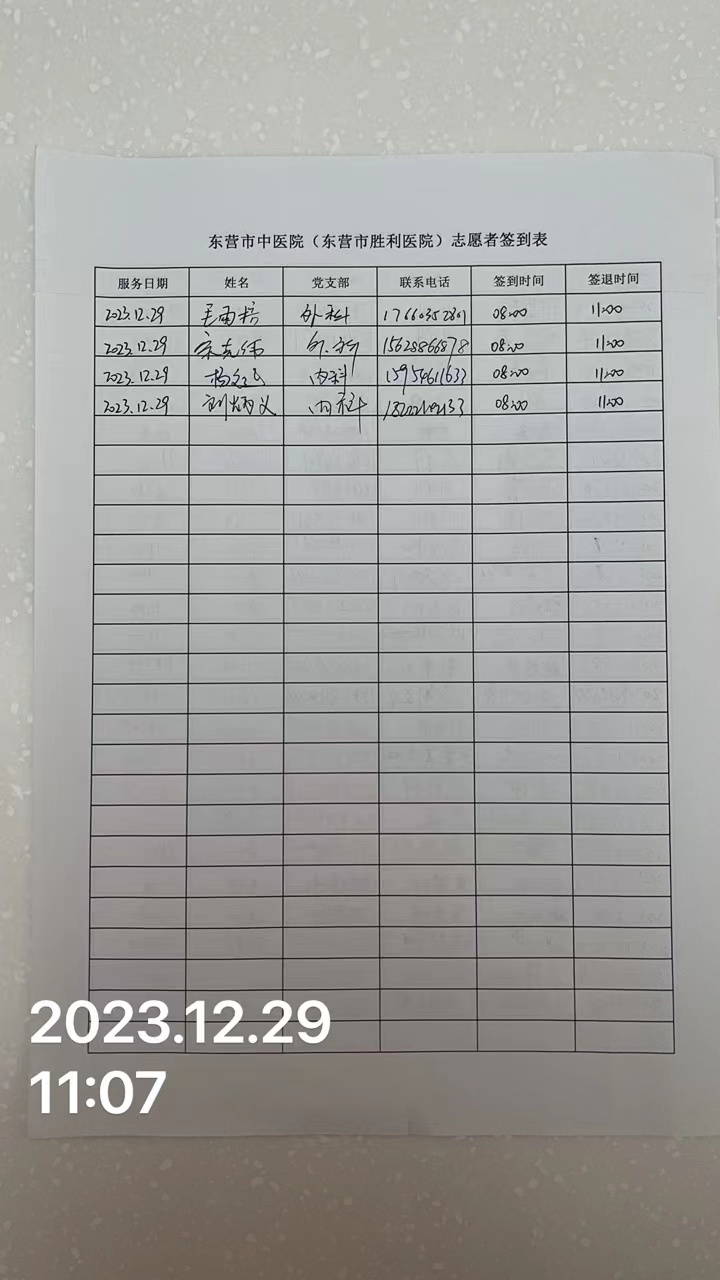 东营市中医院（东营市胜利医院）志愿者签到表
服务日期 姓名 党支部 联系电话 签到时间 签退时间
2023.12.29 外科 17660352801 08:00 11:00
2023.12.29 外科 15628866878 08:00 11:00
2023.12.29 内科 15954611633 08:00 11:00
2023.12.29 内科 08:00 11:00
2023.12.29
11:07